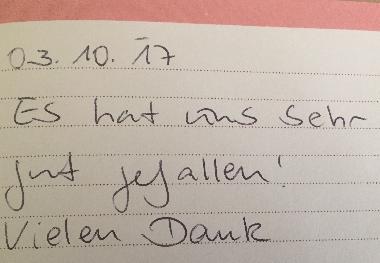 03.10.17
Es hat uns sehr
gut gefallen!
Vielen Dank